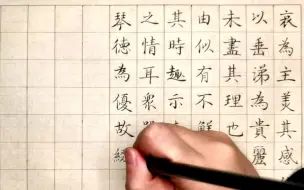 哀為主美其感
以垂涕為貴麗
未盡其理也
由似有不解
其時趣示
之情耳衆
琴德為優故